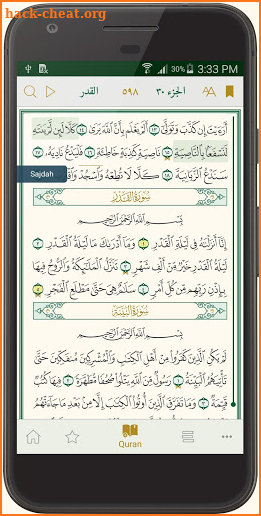 hack-cheat.org
30% 3:33 PM
الجزء ٣٠ ٥٩٨ القدر
أَرَءَيْتَ إِن كَذَّبَ وَتَوَلَّىٰٓ ١٣ أَلَمْ يَعْلَم بِأَنَّ ٱللَّهَ يَرَىٰ ١٤ كَلَّا لَئِن لَّمْ يَنتَهِ
لَنَسْفَعًۢا بِٱلنَّاصِيَةِ ١٥ نَاصِيَةٍ كَٰذِبَةٍ خَاطِئَةٍ ١٦ فَلْيَدْعُ نَادِيَهُۥ ١٧
سَنَدْعُ ٱلزَّبَانِيَةَ ١٨ كَلَّا لَا تُطِعْهُ وَٱسْجُدْ وَٱقْتَرِب
Sajdah
سُورَةُ القَدْرِ
بِسْمِ ٱللَّهِ ٱلرَّحْمَٰنِ ٱلرَّحِيمِ
إِنَّآ أَنزَلْنَٰهُ فِى لَيْلَةِ ٱلْقَدْرِ ١ وَمَآ أَدْرَىٰكَ مَا لَيْلَةُ ٱلْقَدْرِ ٢
لَيْلَةُ ٱلْقَدْرِ خَيْرٌ مِّنْ أَلْفِ شَهْرٍ ٣ تَنَزَّلُ ٱلْمَلَٰٓئِكَةُ وَٱلرُّوحُ فِيهَا
بِإِذْنِ رَبِّهِم مِّن كُلِّ أَمْرٍ ٤ سَلَٰمٌ هِىَ حَتَّىٰ مَطْلَعِ ٱلْفَجْرِ ٥
سُورَةُ البَيِّنَةِ
بِسْمِ ٱللَّهِ ٱلرَّحْمَٰنِ ٱلرَّحِيمِ
لَمْ يَكُنِ ٱلَّذِينَ كَفَرُوا۟ مِنْ أَهْلِ ٱلْكِتَٰبِ وَٱلْمُشْرِكِينَ مُنفَكِّينَ حَتَّىٰ
تَأْتِيَهُمُ ٱلْبَيِّنَةُ ١ رَسُولٌ مِّنَ ٱللَّهِ يَتْلُوا۟ صُحُفًا مُّطَهَّرَةً ٢ فِيهَا كُتُبٌ
قَيِّمَةٌ ٣ وَمَا تَفَرَّقَ ٱلَّذِينَ أُوتُوا۟ ٱلْكِتَٰبَ إِلَّا مِنۢ بَعْدِ مَا جَآءَتْهُمُ
Quran
hack-cheat.org